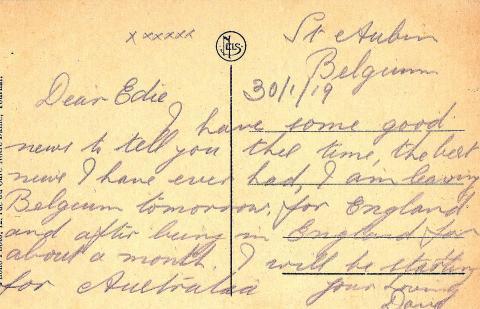 x xxxxxx
NELS
St Aubin
Belgium
30/1/19
Dear Edie
I have some good
news to tell you this time, the best
news I have ever had, I am leaving
Belgium tomorrow, for England
and after being in England for
about a month I will be starting
for Australia
your loving
Dave